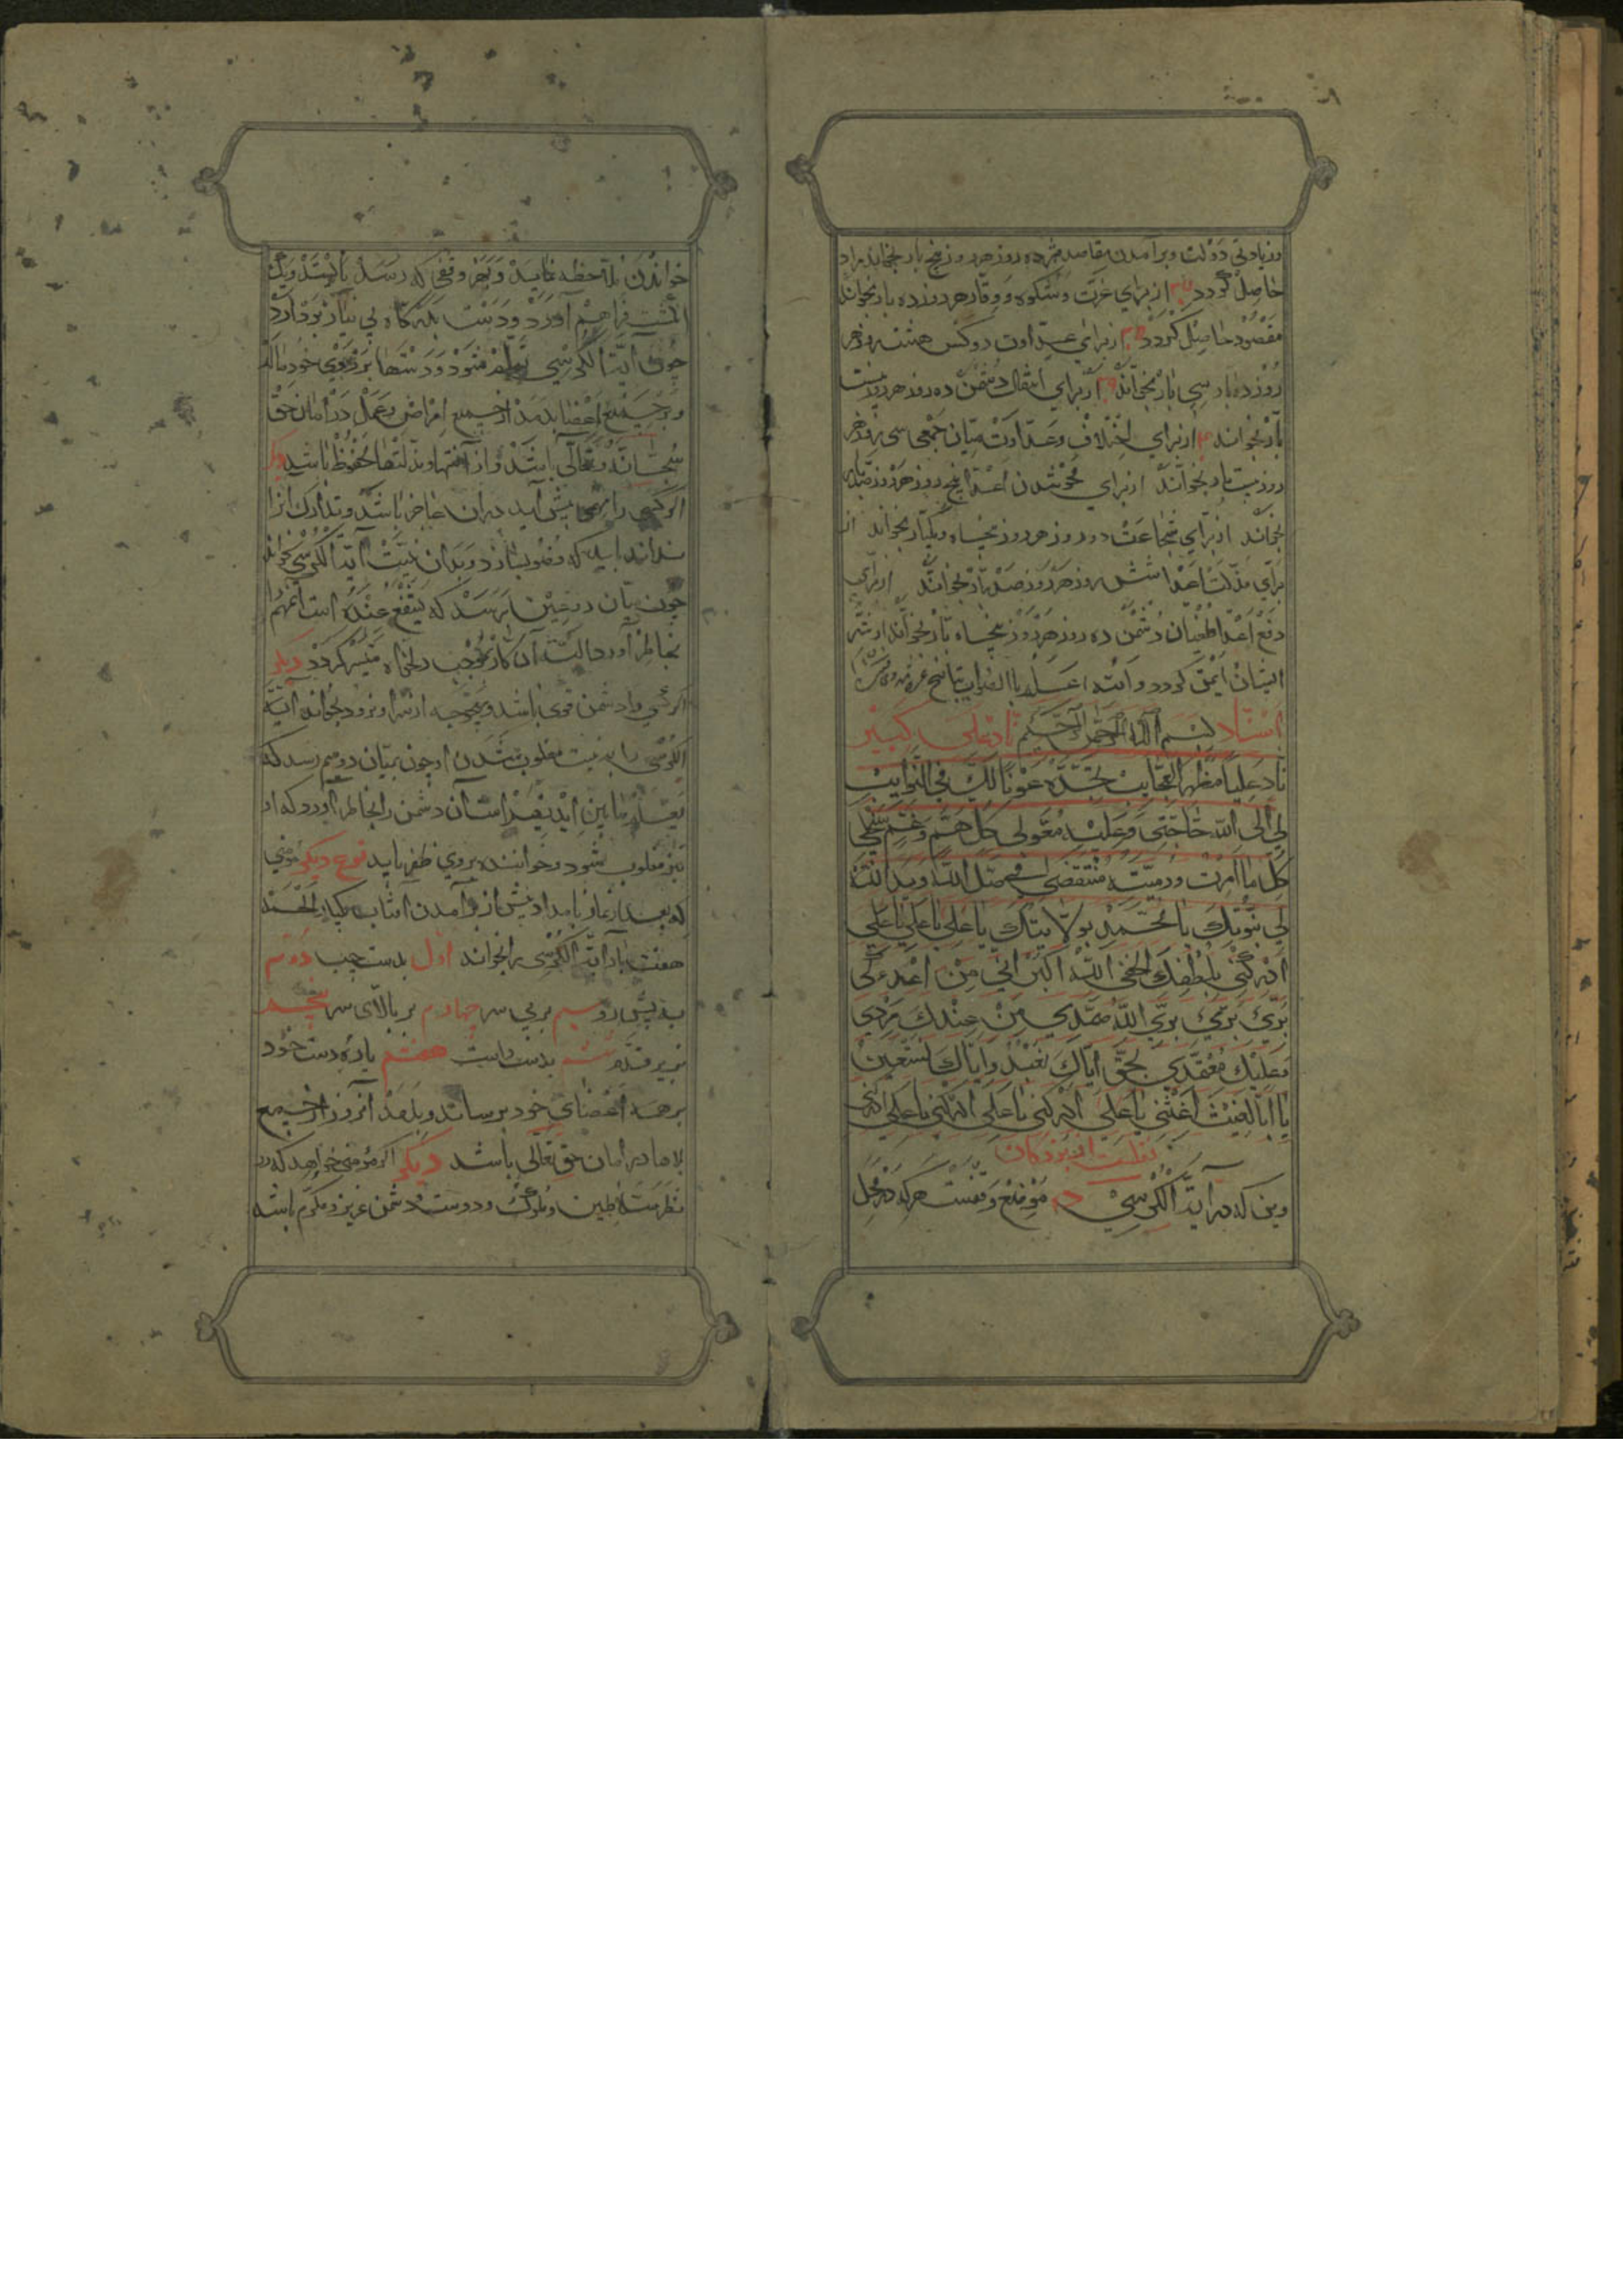 وزیادتی دولت وبرآمدن مقاصد مهم ده روز هر روز پنج بار بخواند مراد
حاصل گردد از برای عزت وشکوه ووقار هر روز ده بار بخواند
مقصود حاصل گردد از برای عداوت دو کس هشت روز هر
روز ده بار سی بار بخواند از برای انتقال دشمن ده روز هر روز بیست
بار بخواند از برای اختلاف وعداوت میان جمعی سی روز هر
روز بیست بار بخواند از برای محو شدن اعدا پنج روز هر روز
بخواند از برای شجاعت دو روز هر روز پنجاه ویکبار بخواند از
برای مذلت اعدا شش روز هر روز صد بار بخواند از برای
دفع اعدا وطغیان دشمن ده روز هر روز پنجاه بار بخواند از شر
ایشان ایمن گردد والله اعلم بالصواب
اسناد بسم الله الرحمن الرحیم ناد علی کبیر
ناد علیا مظهر العجایب تجده عونا لک فی النوایب
لی الی الله حاجتی وعلیه معولی کل هم وغم سینجلی
کل ما امرت ورمیت منتقضی فی ظل الله وید الله
لی بنبوتک یا محمد بولایتک یا علی یا علی یا علی
ادرکنی بلطفک الخفی الله اکبر انی من اعدءکی
بریٔ بریٔ بریٔ الله صمدی من عندک مددی
وعلیک معتمدی بحق ایاک نعبد وایاک نستعین
یا ابا لغیث اغثنی یا علی ادرکنی یا علی ادرکنی یا علی ادرکنی
نقلست از بزرگان
دین که در آیة الکرسی ده موضع وقفست هر که در محل
خواندن ملاحظه نماید وبهر وقفی که رسد بایستد ویک
انگشت فراهم آورد ودست بدرگاه بی نیاز بردارد
چون آیة الکرسی تمام شود ودستها بر روی خود مالد
وبر جمیع اعضا بدمد از جمیع امراض وعمل در امان حق
سبحانه وتعالی باشد واز آفتها وبلیتها محفوظ باشد دیگر
اگر کسی را مهمی پیش آید در آن عاجز باشد وتدارک آنرا
نداند باید که وضو بسازد وبدان نیت آیة الکرسی بخواند
چون میان دو عین برسد که یشفع عنده است آن مهم را
بخاطر آورد البته آن کار بموجب دلخواه میسر گردد دیگر
اگر کسی را دشمن قوی باشد وبهیچ وجه از شر او نرود بخواند آیة
الکرسی را به نیت مغلوب شدن او چون بمیان دو میم رسد که
یعلم ما بین ایدیهم است آن دشمن را بخاطر آورد که او
نیز مغلوب شود وخواننده بروی ظفر یابد نوع دیگر مؤمنی
که بعد از نماز بامداد پیش از برآمدن افتاب یکبار الحمد
هفت بار آیة الکرسی را بخواند اول بدست چپ دوم
به پیش رو سیم بر پس سر چهارم بر بالای سر پنجم
بزیر قدم ششم بدست راست هفتم یا ده دست خود
بر همه اعضای خود برساند وبدمد آنروز از جمیع
بلاها در امان حق تعالی باشد دیگر اگر مؤمنی خواهد که در
نظر سلاطین وملوک ودوست ودشمن عزیز ومکرم باشد